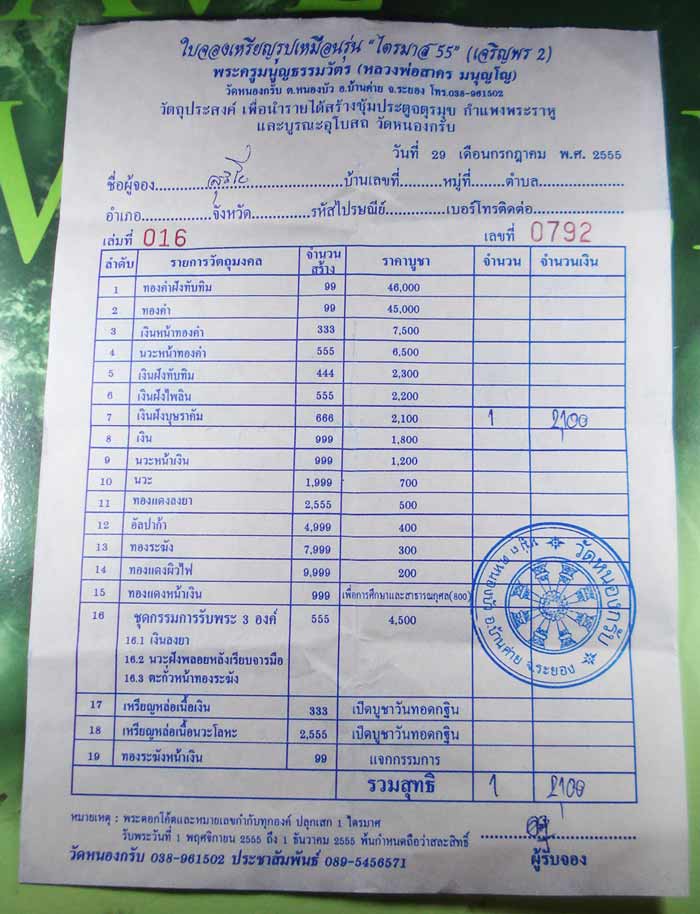 ใบจองเหรียญรูปเหมือนรุ่น "ไตรมาส 55" (เจริญพร 2)
พระครูมนูญธรรมวัตร (หลวงพ่อสาคร มนุญโญ)
วัดหนองกรับ ต.หนองบัว อ.บ้านค่าย จ.ระยอง โทร.038-961502
วัตถุประสงค์ เพื่อนำรายได้สร้างซุ้มประตูจตุรมุข กำแพงพระราหู
และบูรณะอุโบสถ วัดหนองกรับ
วันที่ 29 เดือนกรกฎาคม พ.ศ. 2555
ชื่อผู้จอง..............................บ้านเลขที่.........หมู่ที่.......ตำบล..................
อำเภอ...............จังหวัด.............รหัสไปรษณีย์.............เบอร์โทรติดต่อ....................
เล่มที่ 016 เลขที่ 0792
ลำดับ รายการวัตถุมงคล จำนวนสร้าง ราคาบูชา จำนวน จำนวนเงิน
1 ทองคำฝังทับทิม 99 46,000
2 ทองคำ 99 45,000
3 เงินหน้าทองคำ 333 7,500
4 นวะหน้าทองคำ 555 6,500
5 เงินฝังทับทิม 444 2,300
6 เงินฝังไพลิน 555 2,200
7 เงินฝังบุษราคัม 666 2,100 1 2,100
8 เงิน 999 1,800
9 นวะหน้าเงิน 999 1,200
10 นวะ 1,999 700
11 ทองแดงลงยา 2,555 500
12 อัลปาก้า 4,999 400
13 ทองระฆัง 7,999 300
14 ทองแดงผิวไฟ 9,999 200
15 ทองแดงหน้าเงิน 999 เพื่อการศึกษาและสาธารณกุศล(800)
16 ชุดกรรมการรับพระ 3 องค์ 555 4,500
16.1 เงินลงยา
16.2 นวะฝังพลอยหลังเรียบจารมือ
16.3 ตะกั่วหน้าทองระฆัง
17 เหรียญหล่อเนื้อเงิน 333 เปิดบูชาวันทอดกฐิน
18 เหรียญหล่อเนื้อนวะโลหะ 2,555 เปิดบูชาวันทอดกฐิน
19 ทองระฆังหน้าเงิน 99 แจกกรรมการ
รวมสุทธิ 1 2,100
วัดหนองกรับ
หมู่ ๓ ต.หนองบัว อ.บ้านค่าย จ.ระยอง
หมายเหตุ : พระตอกโค้ดและหมายเลขกำกับทุกองค์ ปลุกเสก 1 ไตรมาศ
รับพระวันที่ 1 พฤศจิกายน 2555 ถึง 1 ธันวาคม 2555 พ้นกำหนดถือว่าสละสิทธิ์
ผู้รับจอง
วัดหนองกรับ 038-961502 ประชาสัมพันธ์ 089-5456571